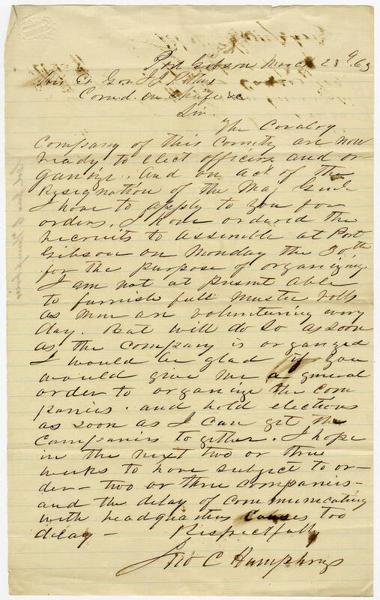 Port Gibson March 23rd 63
His Ex Gov J J Pettus
Comd in Chief &c
Sir
The Cavalry
Company of this County are now
ready to elect officers and or
ganize. And on act of the
Resignation of the Maj Genl
I have to apply to you for
orders. I have ordered the
recruits to assemble at Port
Gibson on Monday the 30th
for the purpose of organizing
I am not at present able
to furnish full muster rolls
as men are volunteering every
day. But will do so as soon
as the company is organized
I would be glad if you
would give me a general
order to organize the com
panies. and hold elections
as soon as I can get the
companies together. I hope
in the next two or three
weeks to have subject to or-
der - two or three companies -
and the delay of communicating
with headquarters causes too
delay - Respectfully
C Humphreys